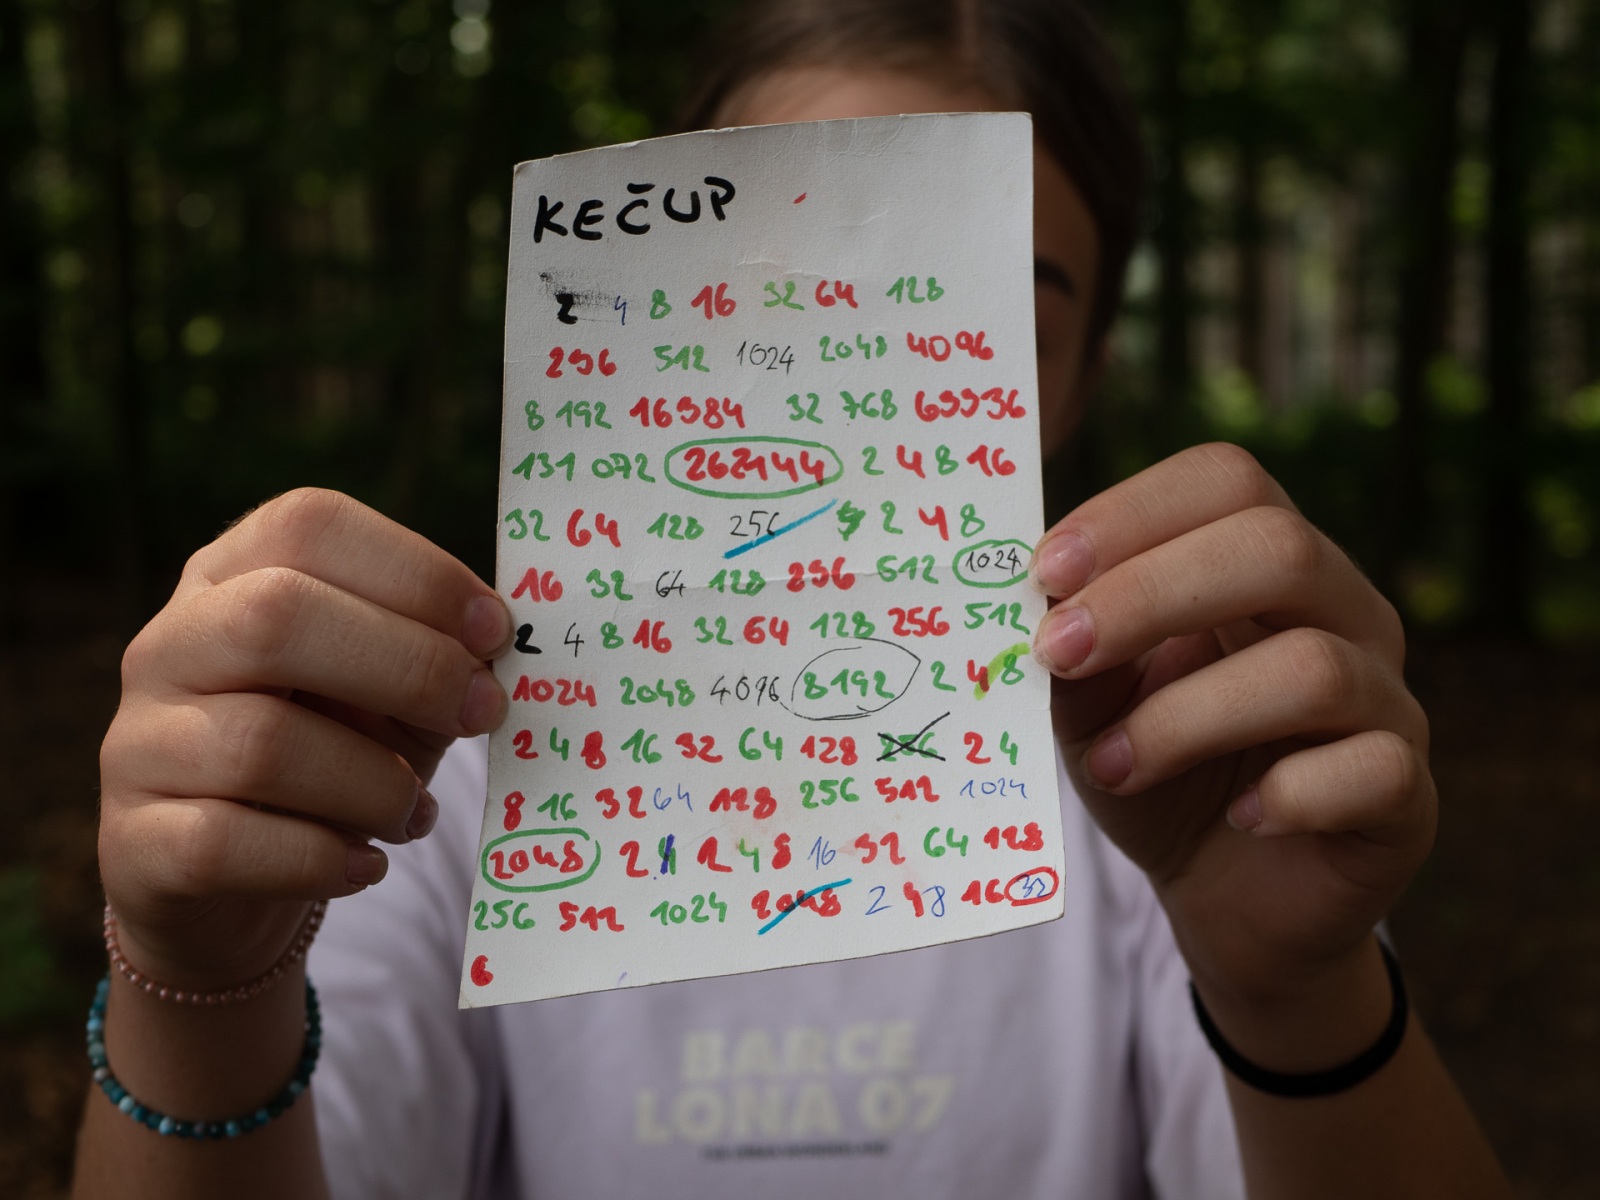 KEČUP
2 4 8 16 32 64 128
256 512 1024 2048 4096
8 192 16384 32 768 65536
131 072 262144 2 4 8 16
32 64 128 256 2 4 8
16 32 64 128 256 512 1024
2 4 8 16 32 64 128 256 512
1024 2048 4096 8192 2 4 8
2 4 8 16 32 64 128 256 2 4
8 16 32 64 128 256 512 1024
2048 2 4 2 4 8 16 32 64 128
256 512 1024 2048 2 4 8 16 32
BARCE
LONA 07